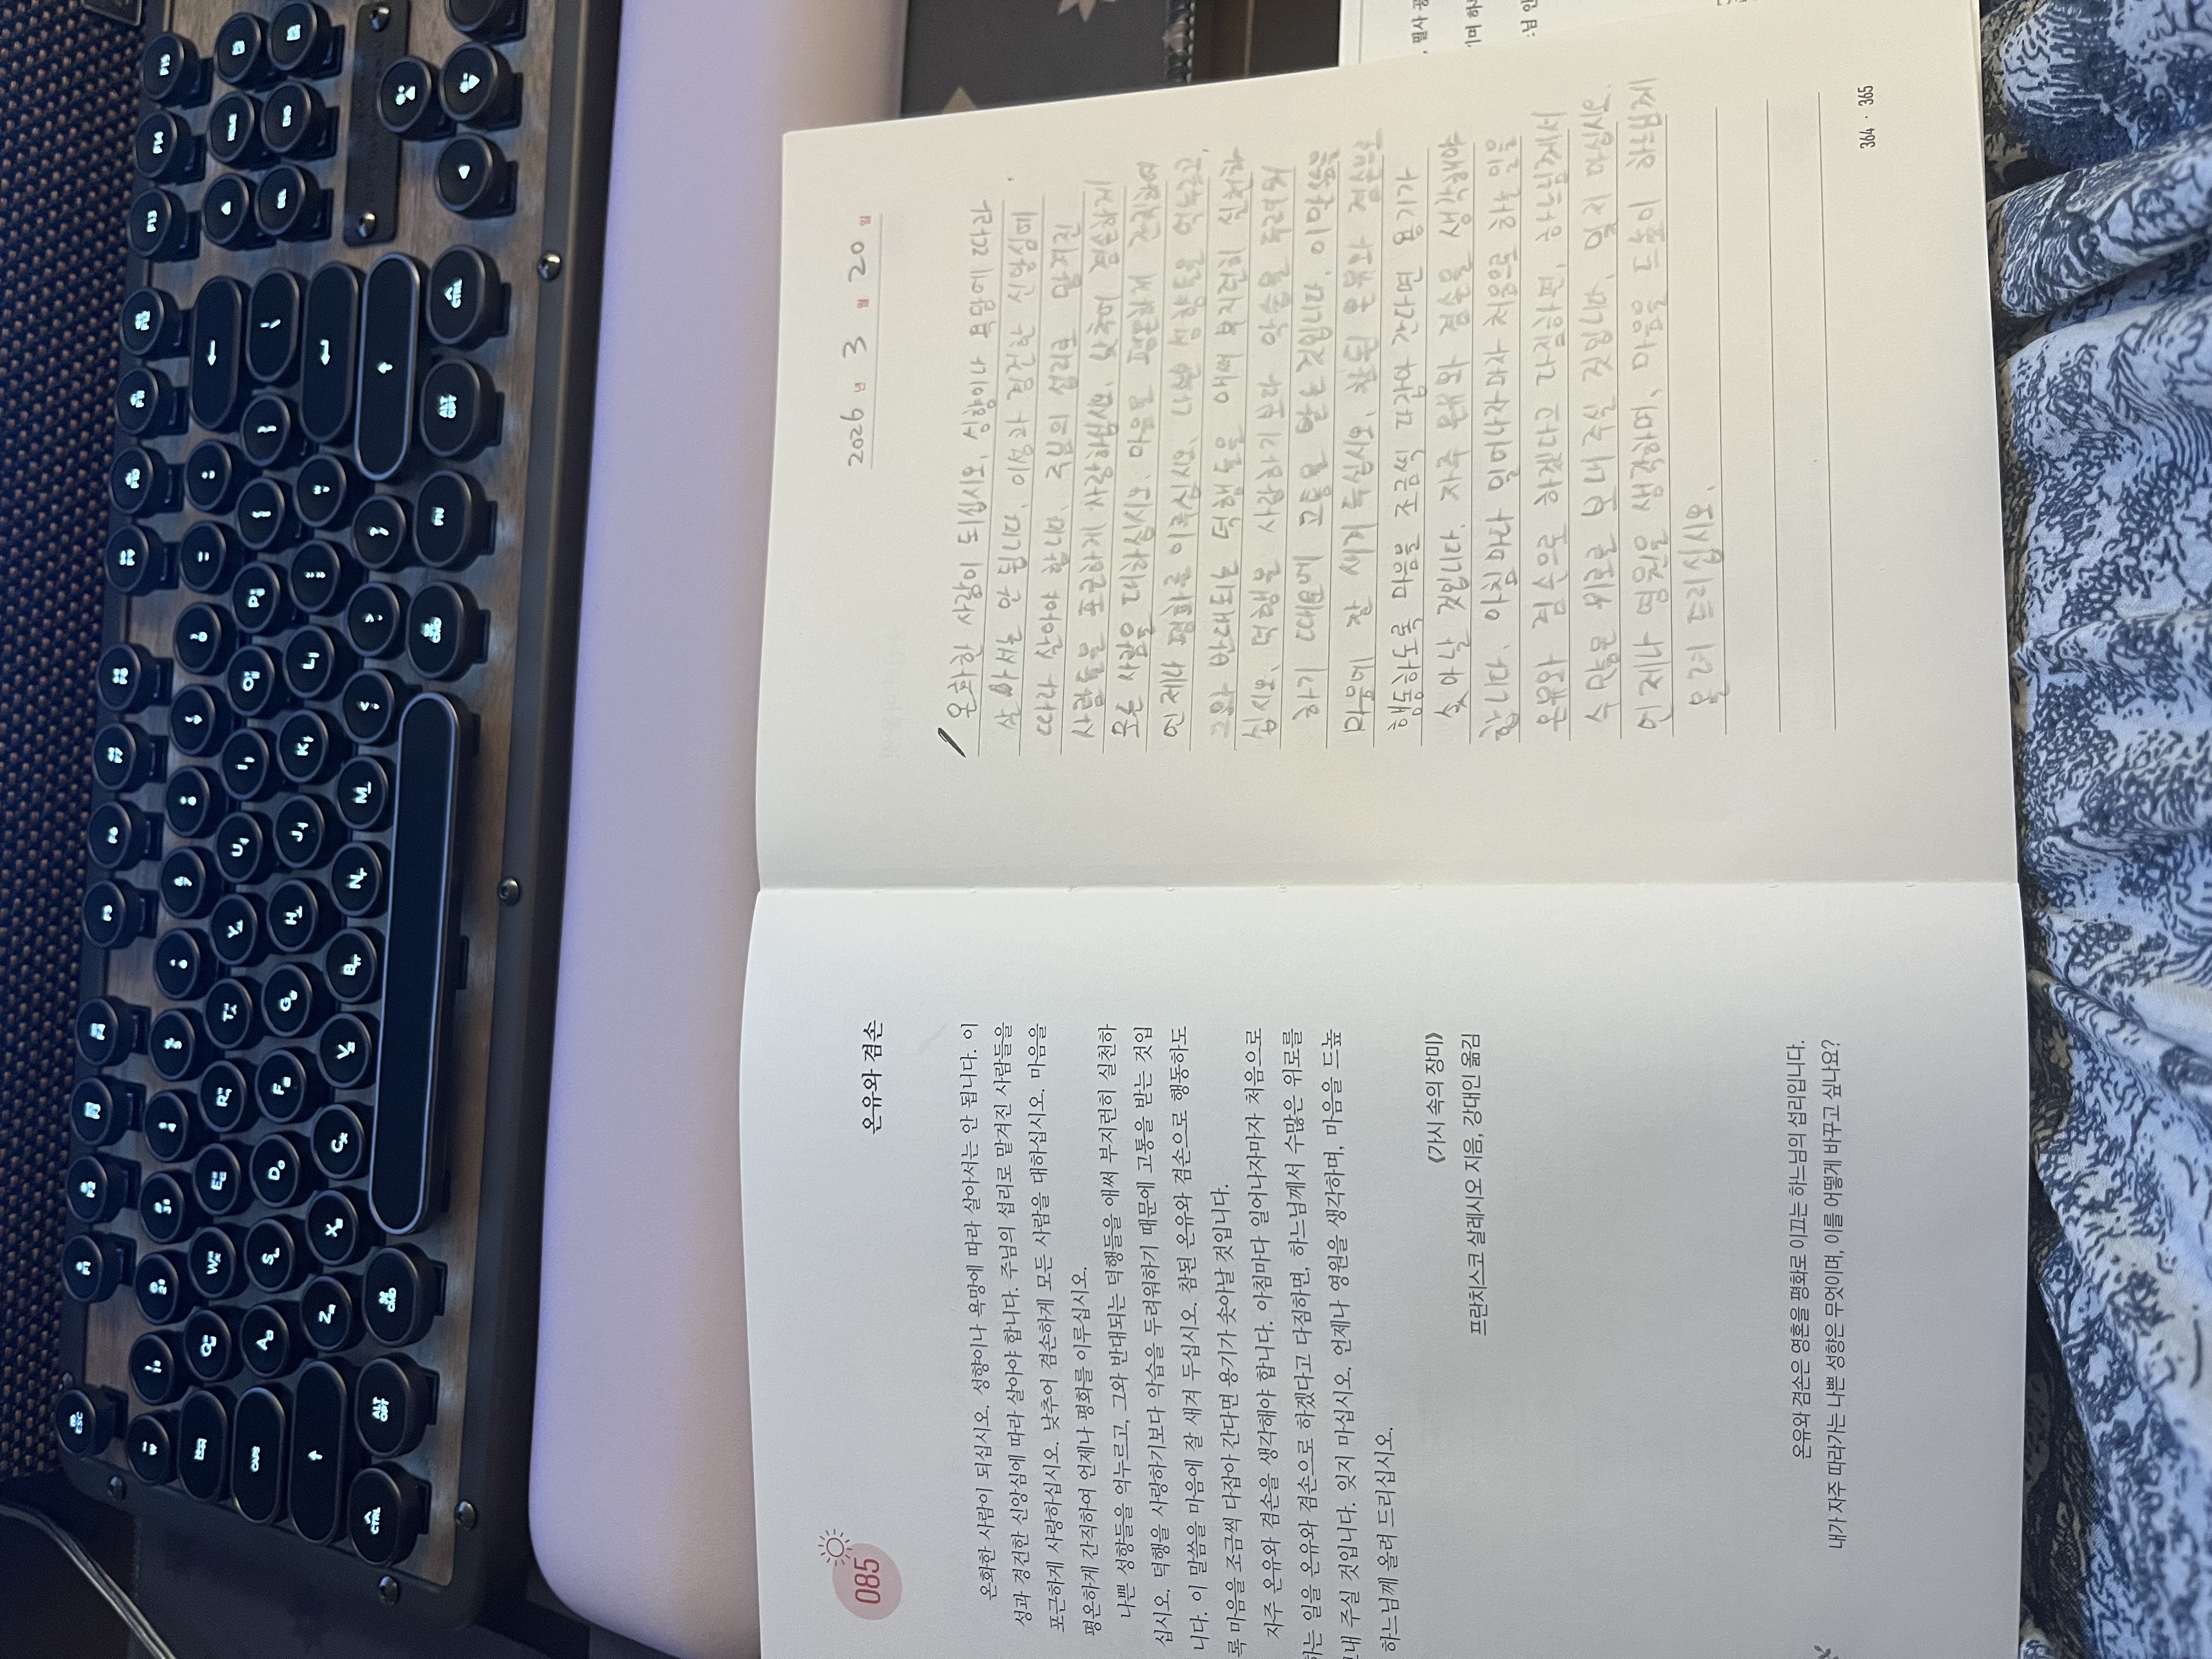 085
온유와 겸손
온화한 사람이 되십시오. 성향이나 욕망에 따라 살아서는 안 됩니다. 이
성과 경건한 신앙심에 따라 살아야 합니다. 주님의 섭리로 맡겨진 사람들을
포근하게 사랑하십시오. 낮추어 겸손하게 모든 사람을 대하십시오. 마음을
평온하게 간직하여 언제나 평화를 이루십시오.
나쁜 성향들을 억누르고, 그와 반대되는 덕행들을 애써 부지런히 실천하
십시오. 덕행을 사랑하기보다 악습을 두려워하기 때문에 고통을 받는 것입
니다. 이 말씀을 마음에 잘 새겨 두십시오. 참된 온유와 겸손으로 행동하도
록 마음을 조금씩 다잡아 간다면 용기가 솟아날 것입니다.
자주 온유와 겸손을 생각해야 합니다. 아침마다 일어나자마자 처음으로
하는 일을 온유와 겸손으로 하겠다고 다짐하면, 하느님께서 수많은 위로를
보내 주실 것입니다. 잊지 마십시오. 언제나 영원을 생각하며, 마음을 드높
하느님께 올려 드리십시오.
《가시 속의 장미》
프란치스코 살레시오 지음, 강대인 옮김
온유와 겸손은 영혼을 평화로 이끄는 하느님의 섭리입니다.
내가 자주 따라가는 나쁜 성향은 무엇이며, 이를 어떻게 바꾸고 싶나요?
2026 년 3 월 20 일
온화한 사람이 되십시오. 성향이나 욕망에 따라
살아서는 안 됩니다. 이성과 경건한 신앙심에
따라 살아야 합니다. 주님의 섭리로 맡겨진
사람들을 포근하게 사랑하십시오. 낮추어 겸손하게
모든 사람을 대하십시오. 마음을 평온하게 간직하여
언제나 평화를 이루십시오. 나쁜 성향들을 억누르고,
그와 반대되는 덕행들을 애써 부지런히 실천하
십시오. 덕행을 사랑하기보다 악습을 두려워
하기 때문에 고통을 받는 것입니다. 이 말씀을
마음에 잘 새겨 두십시오. 참된 온유와 겸손으로
행동하도록 마음을 조금씩 다잡아 간다면 용기가
솟아날 것입니다. 자주 온유와 겸손을 생각해야
합니다. 아침마다 일어나자마자 처음으로 하는 일을
온유와 겸손으로 하겠다고 다짐하면, 하느님께서
수많은 위로를 보내 주실 것입니다. 잊지 마십시오.
언제나 영원을 생각하며, 마음을 드높이 하느님께
올려 드리십시오.
364 · 365